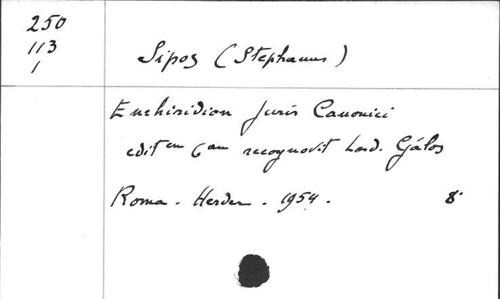 250
113
1
Sipos (Stephanus)
Enchiridion Juris Canonici
editem 6am recognovit Lad. Gálos
Roma - Herder - 1954. 8°